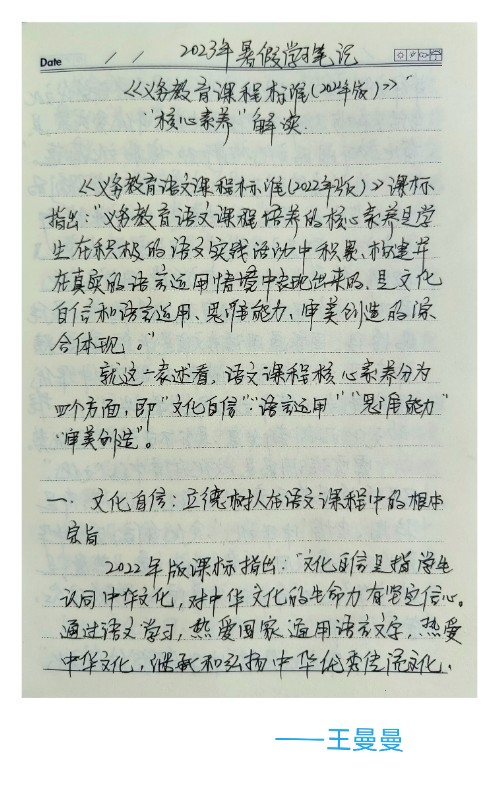 Date / /
2023年暑假学习笔记
《《义务教育课程标准(2022年版)》》
"核心素养"解读
《义务教育语文课程标准(2022年版)》课标
指出:"义务教育语文课程培养的核心素养是学
生在积极的语文实践活动中积累、构建并
在真实的语言运用情境中表现出来的,是文化
自信和语言运用、思维能力、审美创造的综
合体现。"
就这一表述看,语文课程核心素养分为
四个方面,即"文化自信""语言运用""思维能力"
"审美创造"。
一、文化自信:立德树人在语文课程中的根本
宗旨
2022年版课标指出:"文化自信是指学生
认同中华文化,对中华文化的生命力有坚定信心。
通过语文学习,热爱国家通用语言文字,热爱
中华文化,继承和弘扬中华优秀传统文化、
——王曼曼